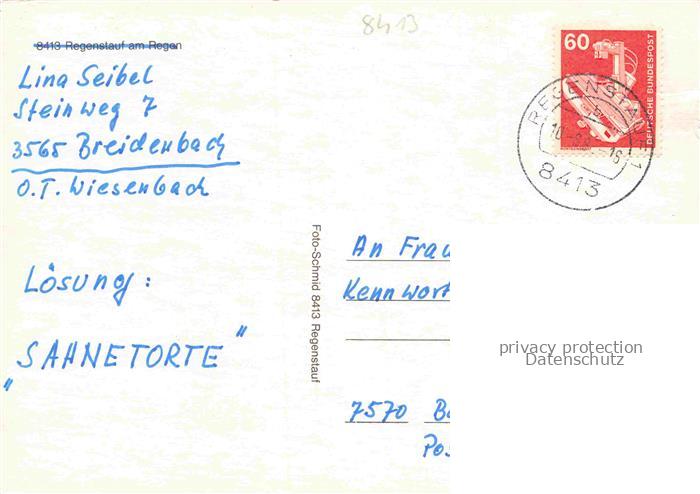 8413
8413 Regenstauf am Regen
Lina Seibel
Steinweg 7
3565 Breidenbach
O.T. Wiesenbach
Lösung:
"SAHNETORTE"
Foto-Schmid 8413 Regenstauf
60
DEUTSCHE BUNDESPOST
REGENSTAUF 1
8413
An Frau
Kennwort
7570
privacy protection
Datenschutz